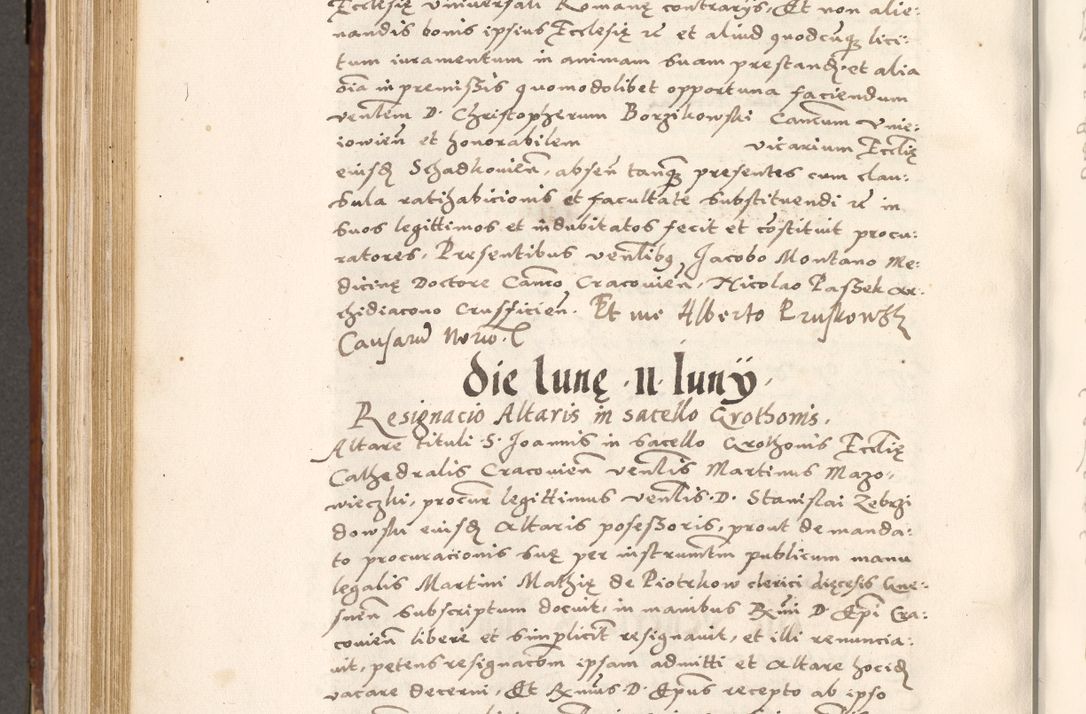 Ecclesię Universali Romanę contrarijs, Et non alie-
nandis bonis ipsius Ecclesię rc et aliud quodcūq₃ lici-
tum iuramentum in animam suam prestand. et alia
oīa in premissis quomodolibet opportuna faciendum
venlem D. Christopherum Borzikowski Cancum Vnie-
iowien̄ et honorabilem vicarium Ecclię
eiusd Schadkovien̄, absen̄ tanq₃ presentes cum clau-
sula ratihabicionis et facultate substituendi rc in
suos legittimos et indubitatos fecit et cōstituit procu-
ratores, Presentibus venlibq₃ Jacobo Montano Me-
dicinę Doctore Canco Cracovien̄, Nicolao Passek Ar-
chidiacono Crusficien̄. Et me Alberto Pruskowski
Causarū Notrio.
die lunę · 11 · Iunÿ,
Resignacio Altaris in sacello Grothonis,
Altare tituli S. Joannis in sacello Grothonis Ecclię
Cathedralis Cracovien̄ venlis Martinus Mazo-
wieczki, procur legittimus venlis D. Stanislai Zebrzi
dowski eiusd Altaris posessoris, prout de manda-
to procuracionis suę per instrumtm publicum manu
legalis Martini Mathię de Piotrkow clerici dięcesis Gne-
snen̄ subscriptum docuit, in manibus Rxmi D. Epi Cra-
covien̄ libere et simplicit resignauit, et illi renuncia-
uit, petens resignacōm ipsam admitti et Altare hocid
vacare decerni, Et Rxmus D. Epus recepto ab ipso